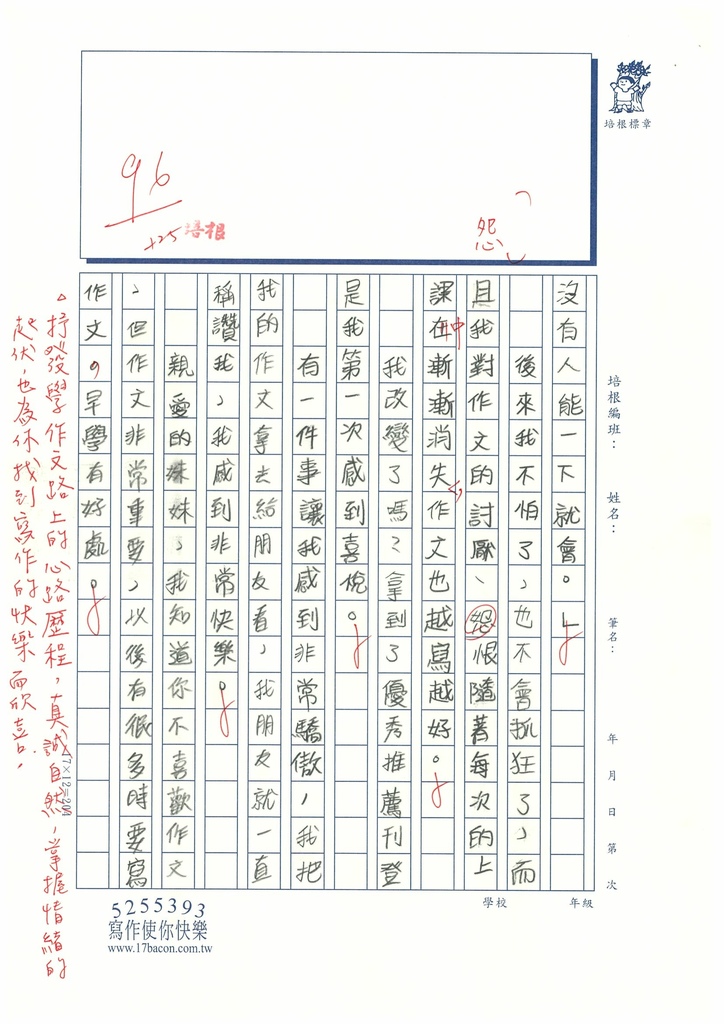 培根標章
96
+25
培根
怨
培根編班：
姓名：
筆名：
年 月 日 第 次
學校
年級
沒有人能一下就會。
後來我不怕了，也不會抓狂了，而
且我對作文的討厭、怨恨隨著每次的上
課在漸漸消失，作文也越寫越好。
中
我改變了嗎？拿到了優秀推薦刊登
是我第一次感到喜悅。
有一件事讓我感到非常驕傲，我把
我的作文拿去給朋友看，我朋友就一直
稱讚我，我感到非常快樂。
親愛的妹妹，我知道你不喜歡作文
，但作文非常重要，以後有很多時要寫
作文，早學有好處。
抒發學作文路上的心路歷程，真誠自然，掌握情緒的
起伏，也為你找到寫作的快樂而欣喜。
17×12=204
5255393
寫作使你快樂
www.17bacon.com.tw